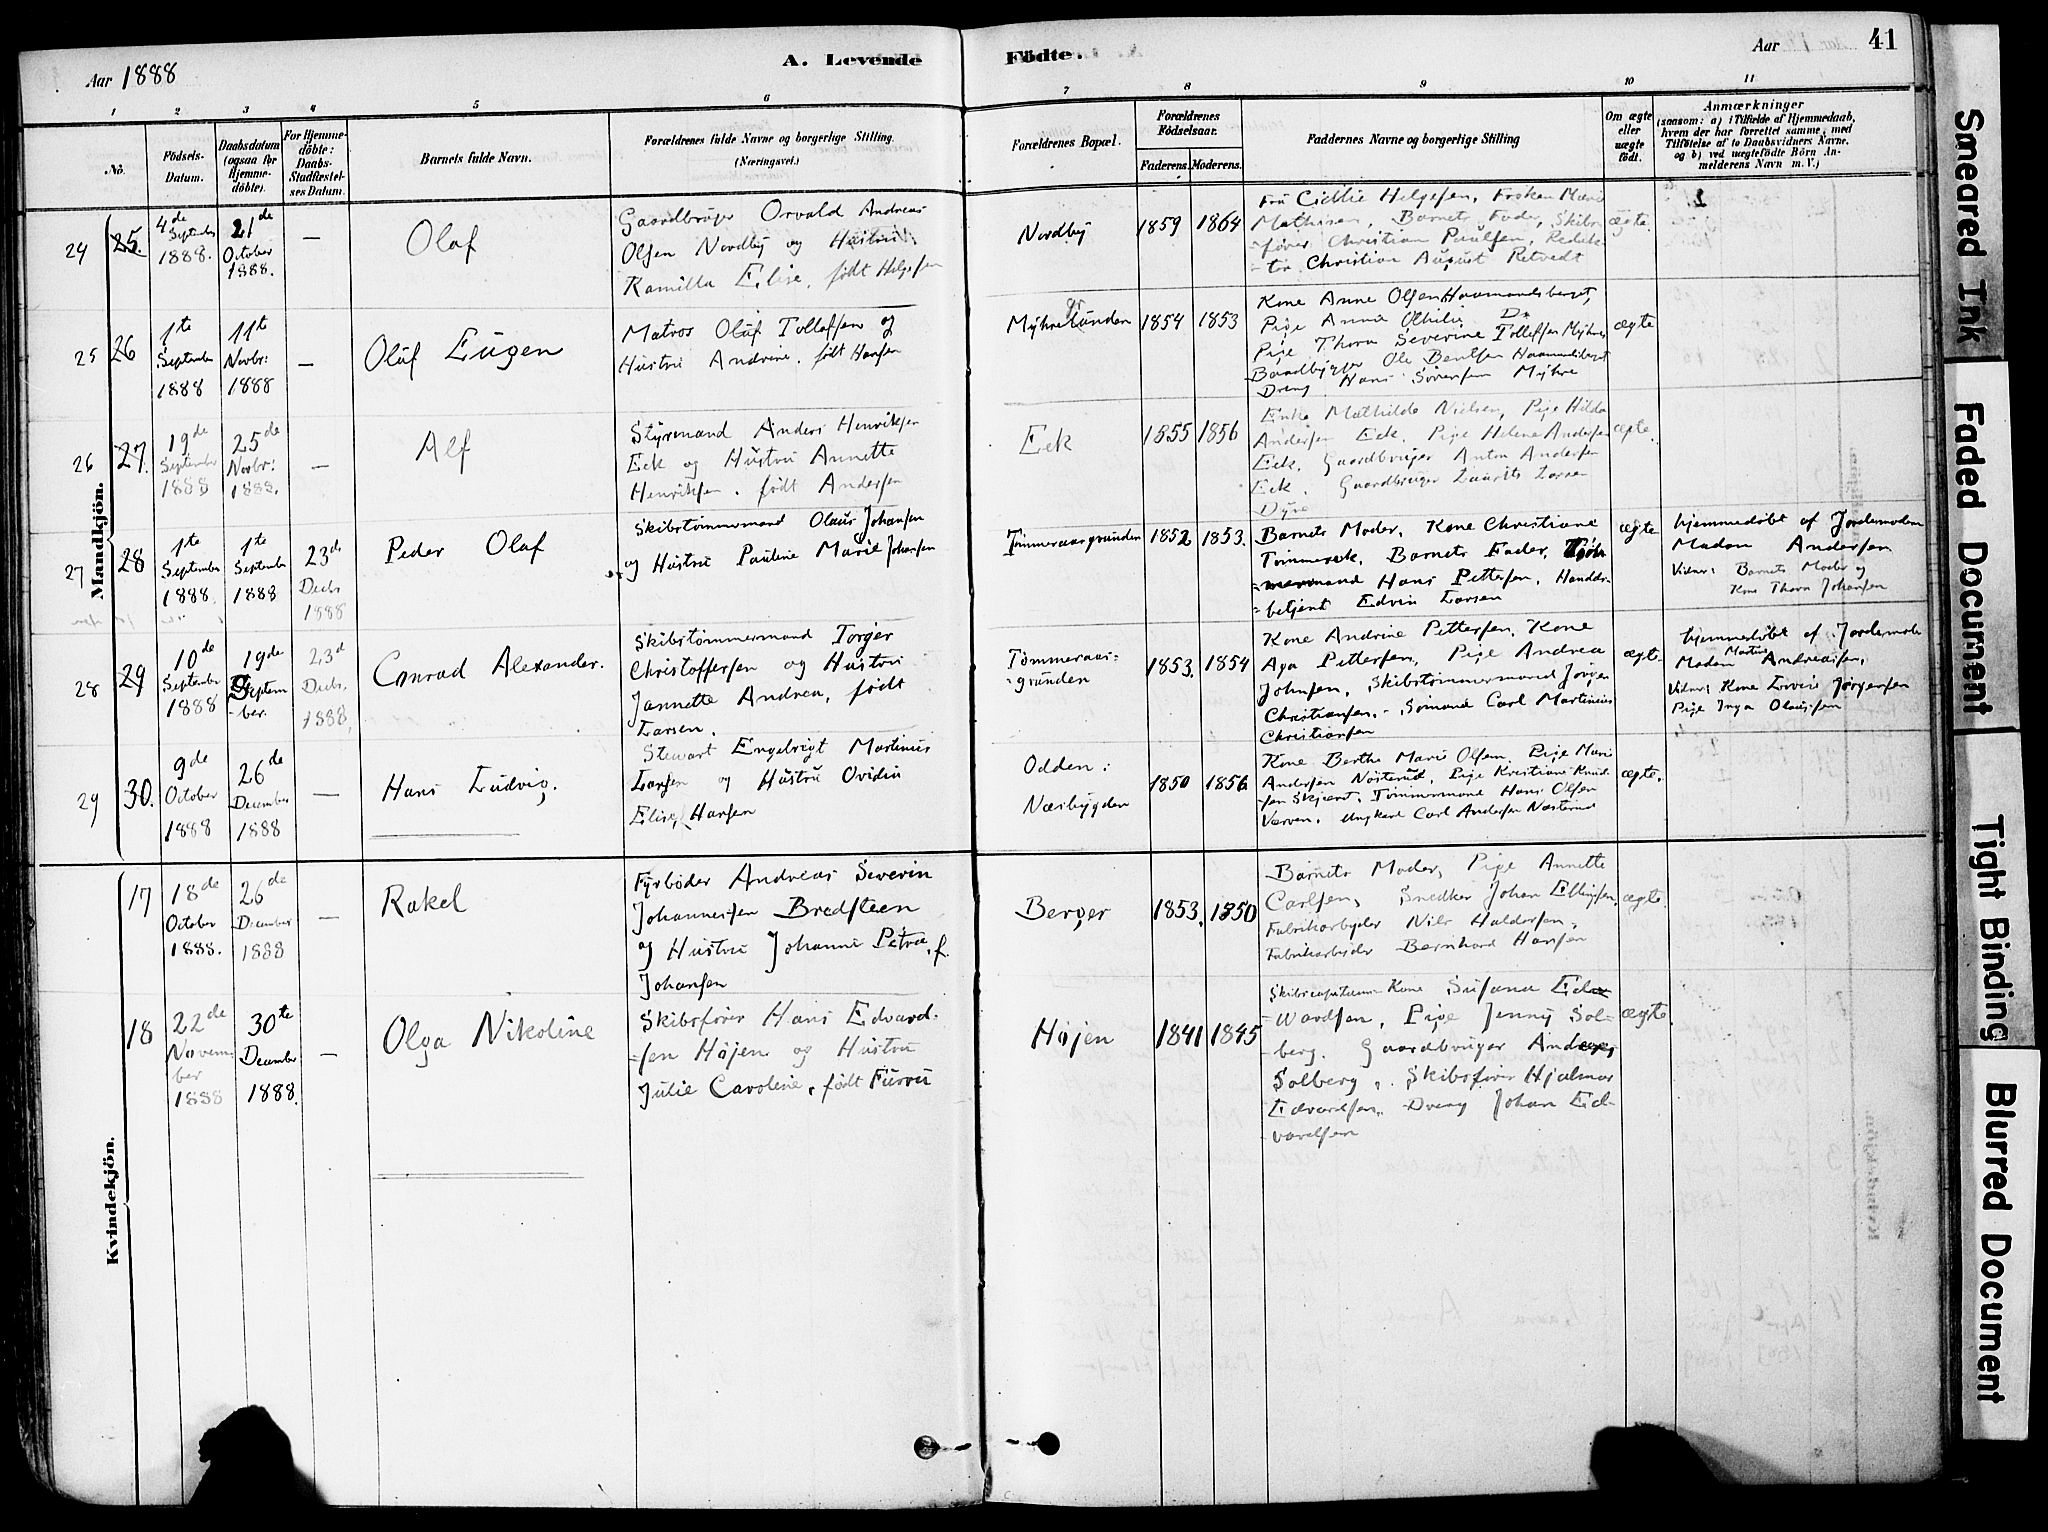 Aar 1888
A. Levende
Födte.
Aar
41
1 2 3 4 5 6
7 8 9 10 11
No.
Födsels-
Datum.
Daabsdatum
(ogsaa for
Hjemme-
döbte).
For Hjemme-
döbte:
Daabs-
Stadfæstel-
ses Datum.
Barnets fulde Navn.
Forældrenes fulde Navne og borgerlige Stilling.
(Næringsvei.)
Forældrenes Bopæl.
Forældrenes
Födselsaar.
Faderens. Moderens.
Faddernes Navne og borgerlige Stilling
Om ægte
eller
uægte
födt.
Anmærkninger
(saasom: a) i Tilfælde af Hjemmedaab,
hvem der har forrettet samme, med
Tilföielse af to Daabsvidners Navne.
og b) ved uægtefödte Börn An-
melderens Navn m. V.)
Mandkjön.
24
25.
4de
September
1888.
21de
October
1888.
—
Olaf
Gaardbruger Osvald Andreas
Olsen Nordby og Hustru
Kamilla Elise, født Helgesen
Nordby
1859
1864
Fru Cicilie Helgesen, Frøken Marie
Mathisen, Barnets Fader, Skibs-
fører Christian Paulsen, Redak-
tør Christian August Retvedt
ægte.
25
26
1te
September
1888
11te
Novbr:
1888
—
Oluf Eugen
Matros Oluf Tollefsen og
Hustru Andrine, født Hansen
1854
1853
Kone Anne Olsen Haamandsberget,
Pige Annie Othilie Do
Pige Thora Severine Tollefsen Myhre,
Baadbygger Ole Bentsen Haamandsberget
Dreng Hans Sørensen Myhre
ægte
26
27.
19de
September
1888
25de
Novbr:
1888.
—
Alf
Styrmand Anders Henriksen
Eek og Hustru Annette
Henriksen, født Andersen
Eek
1855
1856
Enke Mathilde Nielsen, Pige Hilda
Andersen Eek, Pige Helene Andersen
Eek, Gaardbruger Anton Andersen
Eek. Gaardbruger Laurits Larsen
Dyre
ægte.
27
28
1te
September
1888.
1te
September
1888
23de
Decbr
1888
Peder Olaf
Skibstømmermand Olaus Johansen
og Hustru Pauline Marie Johansen
Tømmeraasgrunden
1852
1853.
Barnets Moder, Kone Christiane
Tømmeraas, Barnets Fader,
Hans Pettersen, Handels-
betjent Edvin Larsen
ægte
hjemmedøbt af Jordemoder
Madam Andersen
Vidner: Barnets Moder og
Kone Thora Johansen
28
29
10de
September
1888
19de
Septem
-ber.
23d
Decbr.
1888.
Conrad Alexander.
Skibstømmermand Torger
Christoffersen og Hustru
Jannette Andrea, født
Larsen.
Tømmeraas-
-grunden
1853.
1854
Kone Andrine Pettersen, Kone
Aga Pettersen, Pige Andrea
Johnsen, Skibstømmermand Jørgen
Christiansen, Sømand Carl Martinius
Christiansen
ægte
hjemmedøbt af Jordemoder
Madam Martin Andreassen,
Vidner: Kone Lovise Jørgensen
Pige Inga Olaussen
29
30.
9de
October
1888
26de
December
1888
—
Hans Ludvig.
Stewart Engebrigt Martinius
Larsen og Hustru Ovidia
Elise, Hansen
Odden:
Næsbygden
1850
1856
Kone Berthe Marie Olsen. Pige Marie
Andersen Nøsterud, Pige Kristiane Knud-
sen Skjæret. Tømmermand Hans Olsen
Værven. Ungkarl Carl Andersen Nøsterud
ægte.
Kvindekjön.
17
18de
October
1888.
26de
December
1888
—
Rakel
Fyrbøder Andreas Severin
Johannessen Bredsteen
og Hustru Johanne Petrea, f.
Johansen
Berger
1853.
1850
Barnets Moder, Pige Annette
Carlsen, Snedker Johan Ellingsen,
Fabrikarbejder Nils Haldorsen,
Fabrikarbejder Bernhard Hansen
ægte.
18
22de
Novem-
ber
1888
30te
December
1888.
—
Olga Nikoline
Skibsfører Hans Edvard-
-sen Højen og Hustru
Julie Caroline, født Furru
Højen
1841
1845
Skibscaptain Kone Susana Ed-
-wardsen, Pige Jenny Sol-
-berg. Gaardbruger Anders
Solberg, Skibsfører Hjalmar
Edvardsen, Dreng Johan Ed-
-vardsen
ægte.
Smeared Ink
Faded Document
Tight Binding
Blurred Document